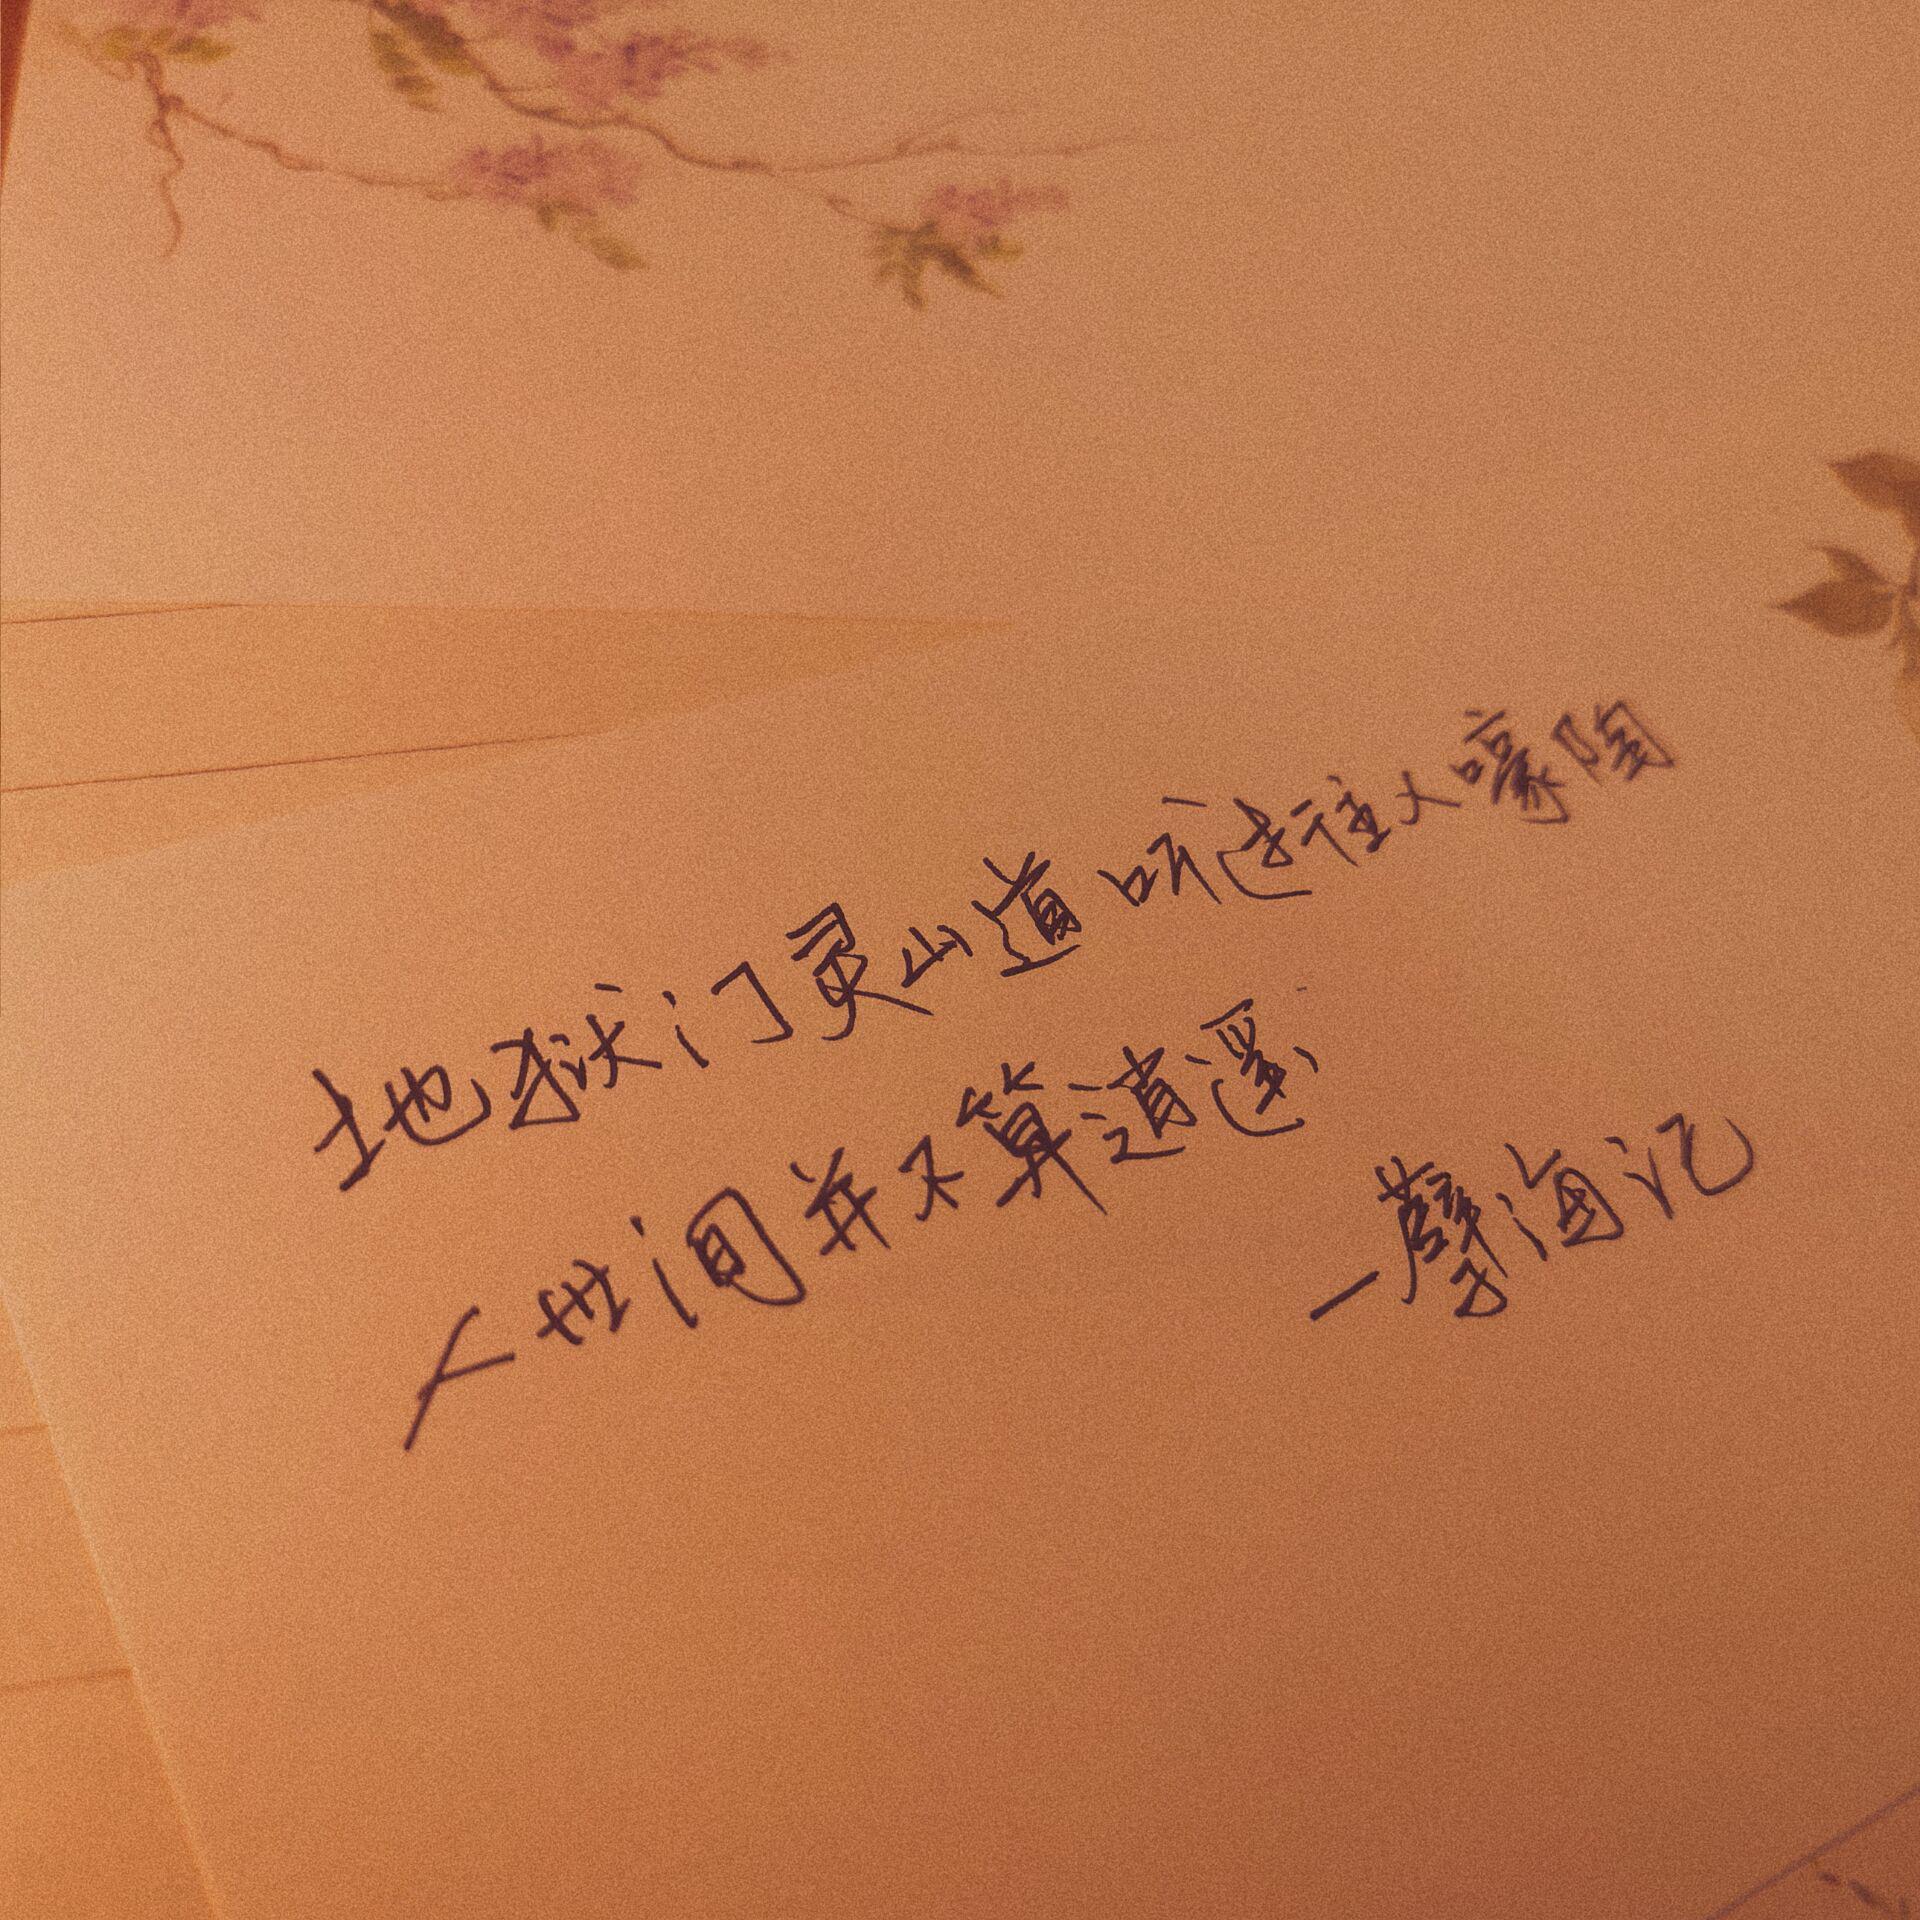 地狱门灵山道听过往人嚎陶
人世间并不算逍遥
一孽海记